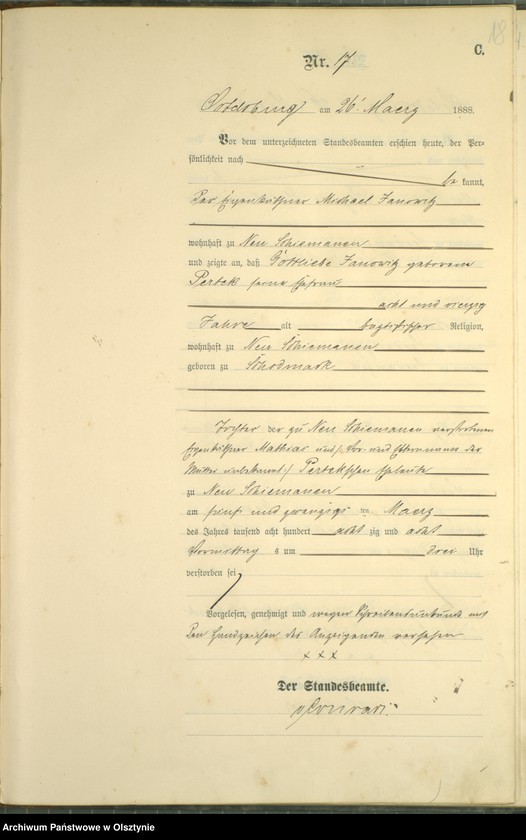 18
C.
Nr. 17
am 26ᵗ Maerz 1888.
Vor dem unterzeichneten Standesbeamten erschien heute, der Per-
sönlichkeit nach
be kannt,
Der Eigenkäthner Michael Janowitz
wohnhaft zu Neu Schiemanen
und zeigte an, daß Gottliebe Janowitz geborene
Pertek seine Ehefrau
acht und vierzig
Jahre alt baptistischer Religion,
wohnhaft zu Neu Schiemanen
geboren zu Schodmack
Tochter der zu Neu Schiemanen verstorbenen
Eigenkäthner Mathias und /: Vor- und der
Mutter unbekannt :/ Pertekschen Eheleute
zu Neu Schiemanen
am fünf und zwanzigs ten Maerz
des Jahres tausend acht hundert acht zig und acht
Vormittag s um drei Uhr
verstorben sei
Vorgelesen, genehmigt und wegen Schreibensunkunde mit
den Handzeichen des Anzeigenden versehen
x x x
Der Standesbeamte.
Archiwum Państwowe w Olsztynie